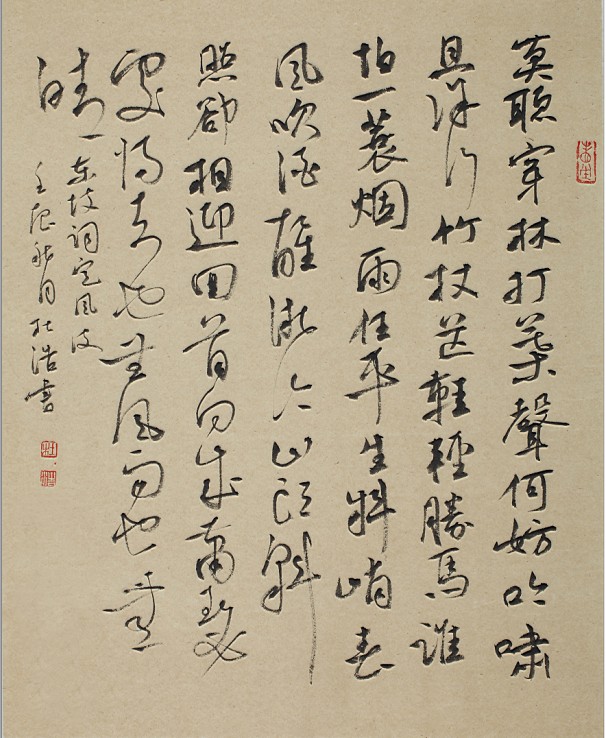 莫聽穿林打葉聲何妨吟嘯
且徐行竹杖芒鞋輕勝馬誰
怕一蓑烟雨任平生料峭春
風吹酒醒微冷山頭斜
照卻相迎回首向來蕭瑟
處歸去也無風雨也無
晴
東坡詞定風波
壬辰秋月杜浩書